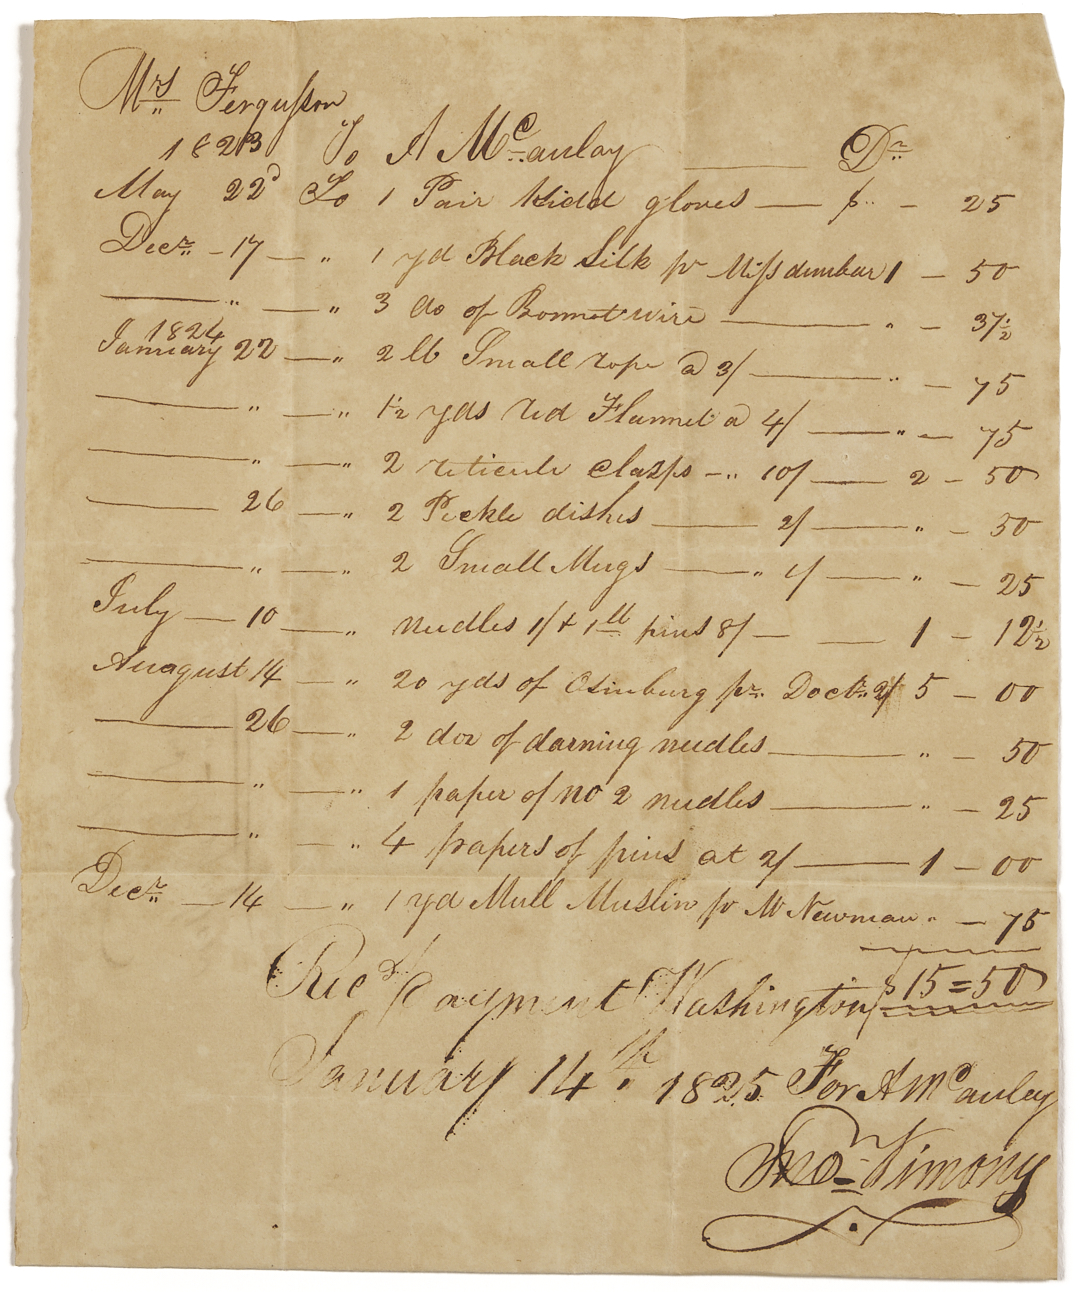 Mrs Fergusson
1823 To A McCauley Dr
May 22d To 1 Pair Kidd gloves — $ .. — 25
Decr. — 17 — " 1 yd Black Silk pr Miss dunbar 1 — 50
— " — " 3 do of Bonnet wire — " — 37½
1824
January 22 — " 2 lb Small rope a 3/ — " — 75
— " — " 1½ yds red Flannel a 4/ — " — 75
— " — " 2 reticule clasps — " 10/ — 2 — 50
— 26 — " 2 Pickle dishes — 2/ — " — 50
— " — " 2 Small Mugs — " 1/ — " — 25
July — 10 — " needles 1/ & 1 lb pins 8/ — 1 — 12½
Auagust 14 — " 20 yds of Osinburg pr. Doctr. 2/ 5 — 00
— 26 — " 2 doz of darning needles — " — 50
— " — " 1 paper of no 2 needles — " — 25
— " — " 4 papers of pins at 2/ — 1 — 00
Decr. — 14 — " 1 yd Mull Muslin pr M Newman " — 75
Recd payment Washington $ 15=50
January 14th. 1825 For A McCauley
Jno. Timony